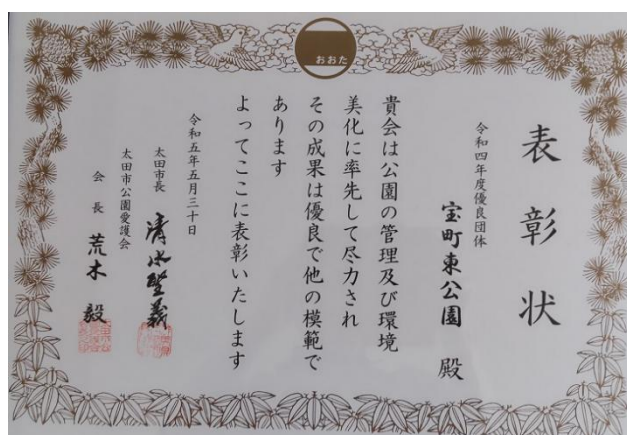 おおた
表彰状
令和四年度優良団体
宝町東公園 殿
貴会は公園の管理及び環境
美化に率先して尽力され
その成果は優良で他の模範で
あります
よってここに表彰いたします
令和五年五月三十日
太田市長 清水聖義
太田市公園愛護会
会長 荒木毅